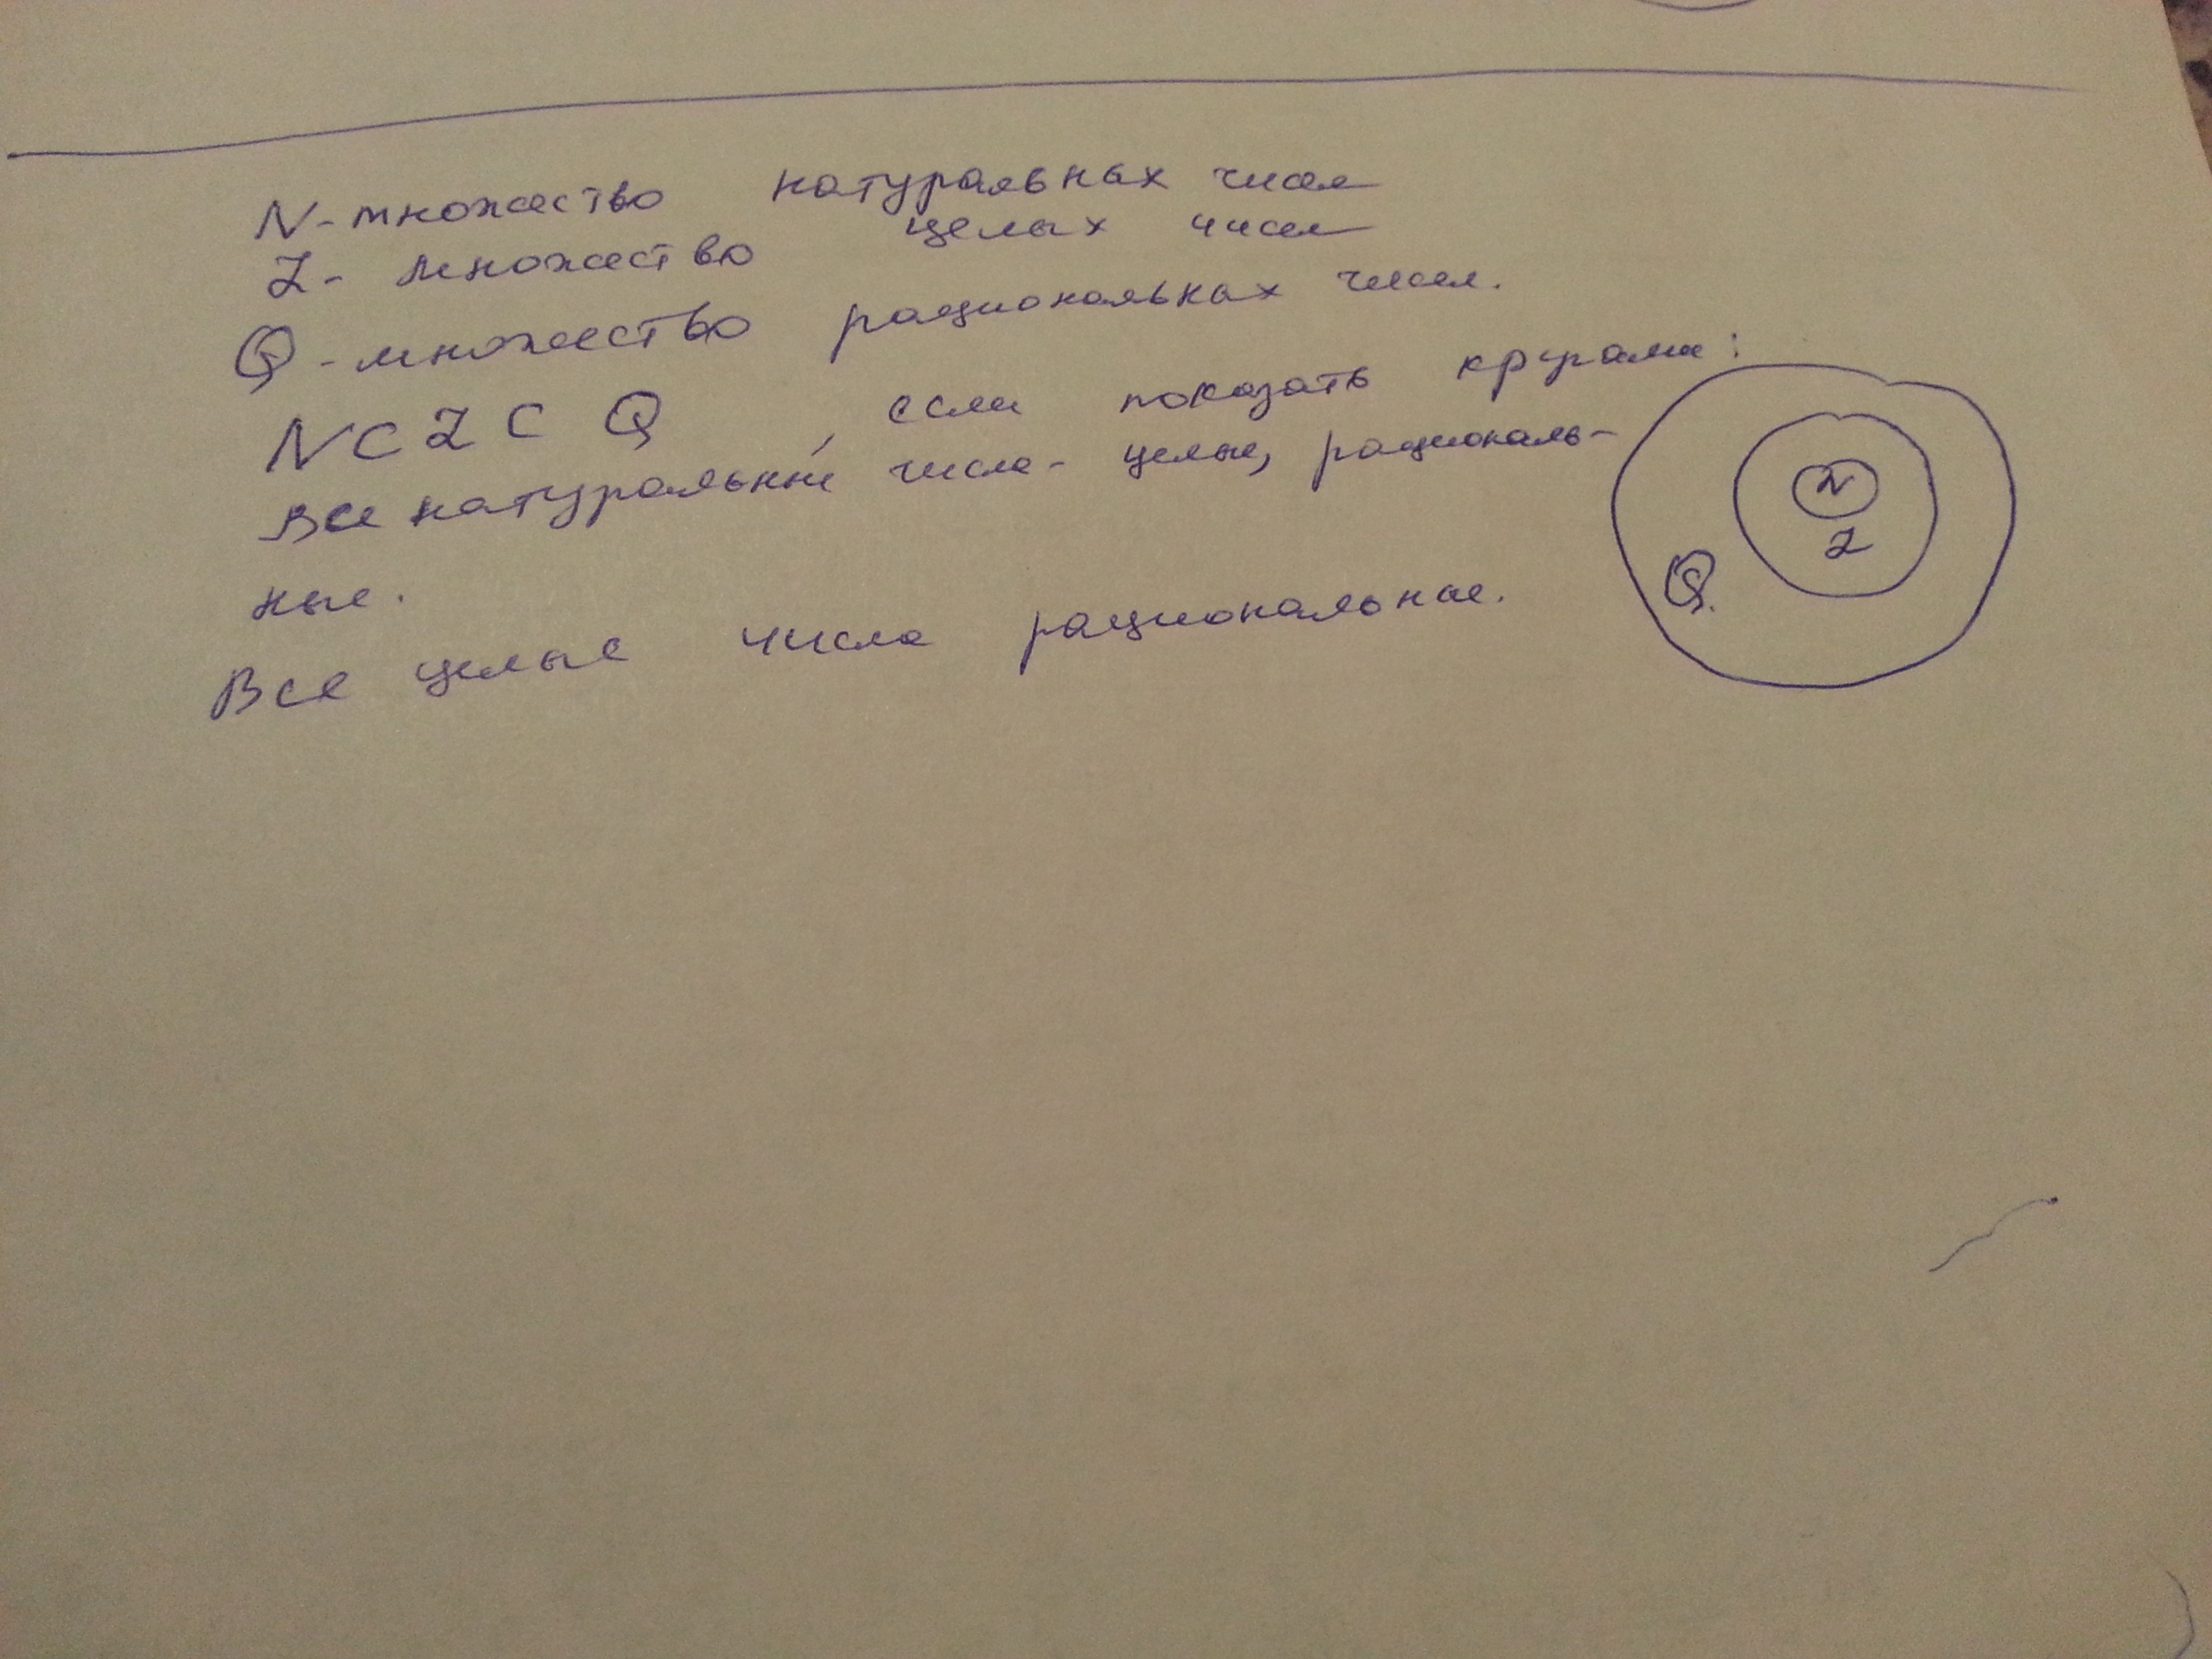 N - множество натуральных чисел
Z - множество целых чисел
Q - множество рациональных чисел.
N ⊂ Z ⊂ Q, если показать кругами:
Все натуральные числа - целые, рациональ-
ные.
Все целые числа рациональные.
N
Z
Q.